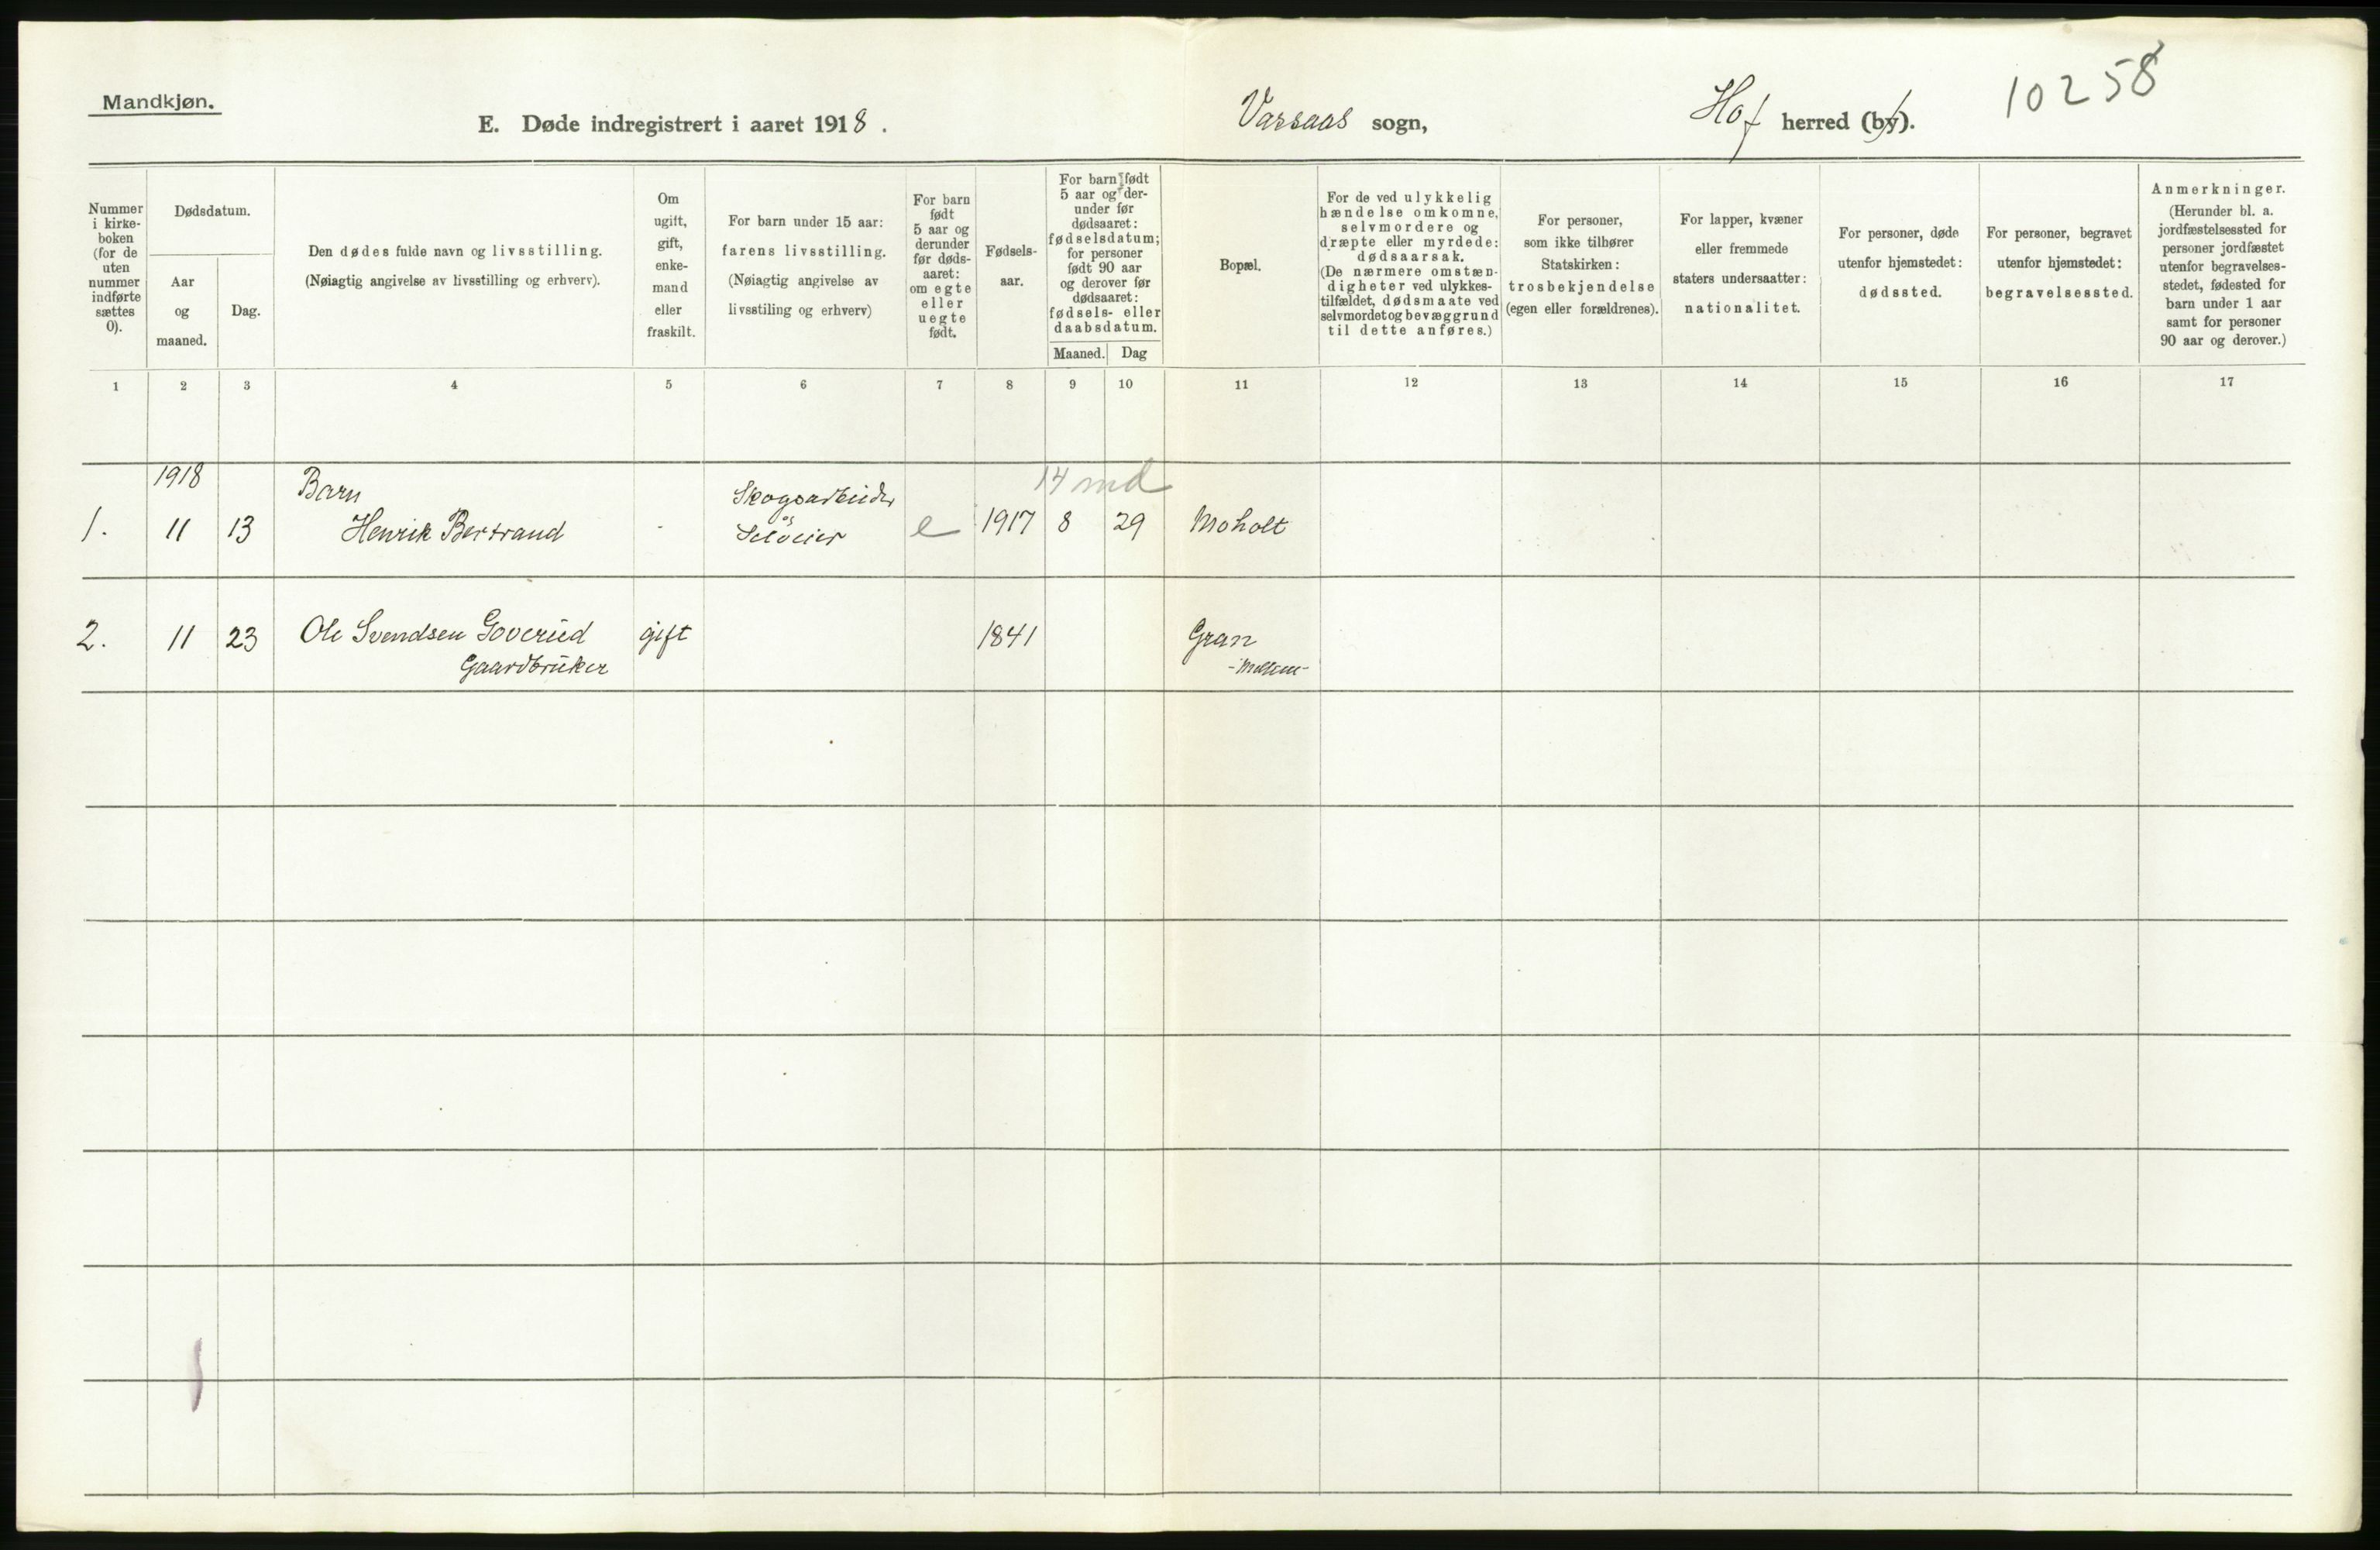 Mandkjøn.
E. Døde indregistrert i aaret 1918.
Vassaas sogn,
Hof herred (by).
10258
Nummer
i kirke-
boken
(for de
uten
nummer
indførte
sættes
0).
Dødsdatum.
Aar
og
maaned.
Dag.
Den dødes fulde navn og livsstilling.
(Nøiagtig angivelse av livsstilling og erhverv).
Om
ugift,
gift,
enke-
mand
eller
fraskilt.
For barn under 15 aar:
farens livsstilling.
(Nøiagtig angivelse av
livsstiling og erhverv)
For barn
født
5 aar og
derunder
før døds-
aaret:
om egte
eller
uegte
født.
Fødsels-
aar.
For barn født
5 aar og der-
under før
dødsaaret:
fødselsdatum;
for personer
født 90 aar
og derover før
dødsaaret:
fødsels- eller
daabsdatum.
Maaned. Dag
Bopæl.
For de ved ulykkelig
hændelse omkomne,
selvmordere og
dræpte eller myrdede:
dødsaarsak.
(De nærmere omstæn-
digheter ved ulykkes-
tilfældet, dødsmaate ved
selvmordet og bevæggrund
til dette anføres.)
For personer,
som ikke tilhører
Statskirken:
trosbekjendelse
(egen eller forældrenes).
For lapper, kvæner
eller fremmede
staters undersaatter:
nationalitet.
For personer, døde
utenfor hjemstedet:
dødssted.
For personer, begravet
utenfor hjemstedet:
begravelsessted.
Anmerkninger.
(Herunder bl. a.
jordfæstelsessted for
personer jordfæstet
utenfor begravelses-
stedet, fødested for
barn under 1 aar
samt for personer
90 aar og derover.)
1 2 3 4 5 6 7 8 9 10 11 12 13 14 15 16 17
1918 Barn Skogsarbeider 14 md
1. 11 13 Henrik Bertrand - og Selveier e 1917 8 29 Moholt
2. 11 23 Ole Svendsen Goverud gift 1841 Gran
Gaardbruker